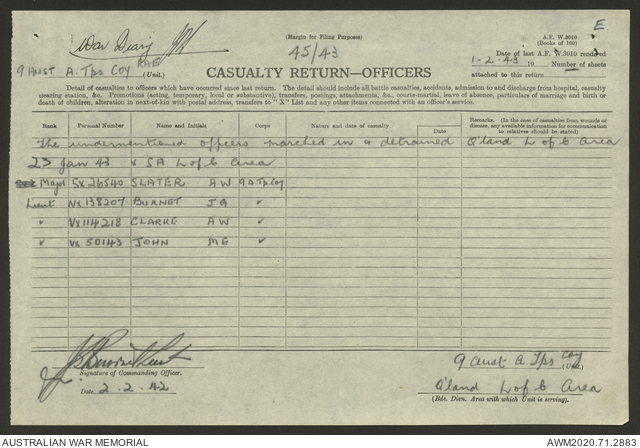 War Diary
(Margin for Filing Purposes)
45/43
A.F. W.3010
(Books of 100)
E
Date of last A.F. W.3010 rendered
1-2-43 19 Number of sheets
attached to this return
9 Aust A. Tps Coy RAE
(Unit.)
CASUALTY RETURN—OFFICERS
Detail of casualties to officers which have occurred since last return. The detail should include all battle casualties, accidents, admission to and discharge from hospital, casualty
clearing station, &c. Promotions (acting, temporary, local or substantive), transfers, postings, attachments, &c., court-martial, leave of absence, particulars of marriage and birth or
death of children, alteration in next-of-kin with postal address, transfers to "X" List and any other items connected with an officer's service.
Rank Personal Number Name and Initials Corps Nature and date of casualty Date Remarks. (In the case of casualties from wounds or disease, any available information for communication to relatives should be stated)
The undermentioned officers marched in & detrained Q'land L of C Area
23 Jan 43 SA L of C Area
Major SX26540 SLATER A W AATpCoy
Lieut NX138207 BURNET J G ✓
" VX114218 CLARKE A W ✓
" VX50143 JOHN M E ✓
Signature of Commanding Officer.
Date 2.2.42
9 Aust A Tps Coy
(Unit.)
Q'land L of C Area
(Bde. Divn. Area with which Unit is serving).
AUSTRALIAN WAR MEMORIAL
AWM2020.71.2883